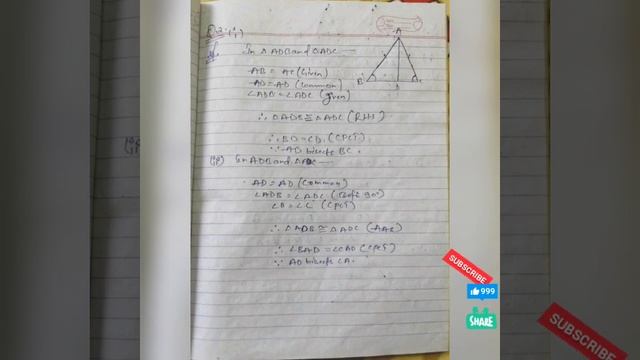 Q.2. (i)
A
In △ADB and △ADC —
AB = AC (Given)
AD = AD (Common)
∠ADB = ∠ADC (given)
B D C
∴ △ADB ≅ △ADC (RHS)
∴ BD = CD (CPCT)
∵ AD bisects BC.
(ii) In ADB and △ADC —
AD = AD (Common)
∠ADB = ∠ADC (90°)
∠B = ∠C (CPCT)
∴ △ADB ≅ △ADC (AAS)
∴ ∠BAD = ∠CAD (CPCT)
∵ AD bisects ∠A.
SUBSCRIBE
999
SHARE
SUBSCRIBE